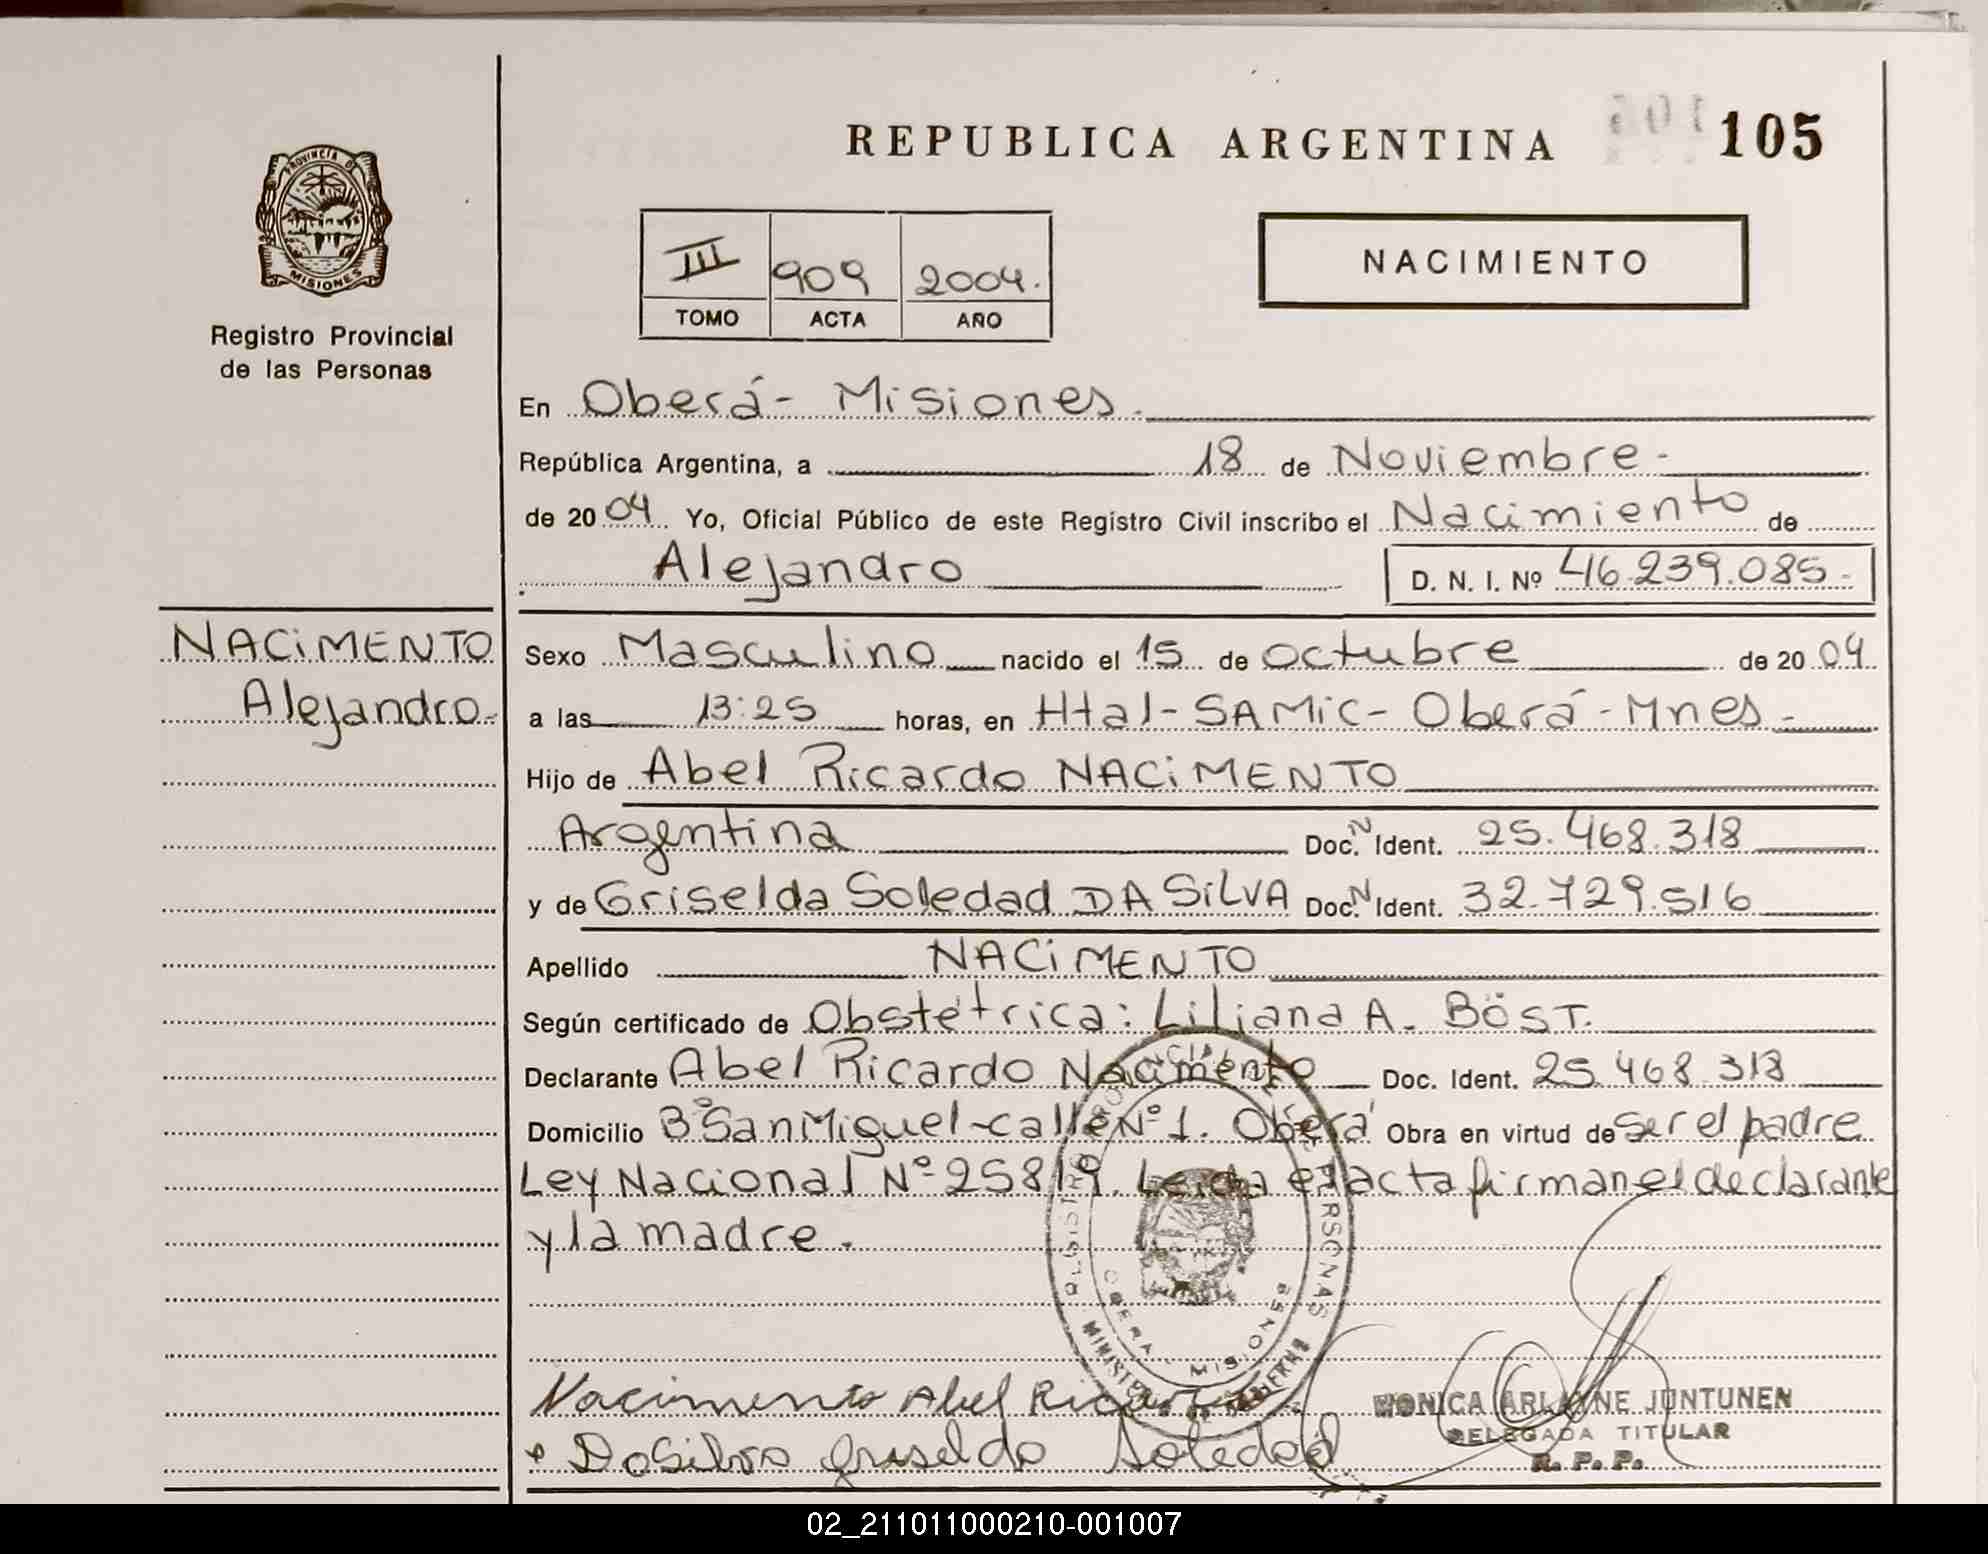 REPUBLICA ARGENTINA 105
PROVINCIA DE
MISIONES
Registro Provincial
de las Personas
III 909 2004.
TOMO ACTA AÑO
NACIMIENTO
En Oberá - Misiones.
República Argentina, a 18 de Noviembre -
de 2004 Yo, Oficial Público de este Registro Civil inscribo el Nacimiento de
Alejandro D. N. I. Nº 46.239.085.-
NACIMENTO
Alejandro.-
Sexo Masculino nacido el 15 de octubre de 2004
a las 13:25 horas, en Htal - SAMIC - Oberá - Mnes. -
Hijo de Abel Ricardo NACIMENTO
Argentina Doc. N Ident. 25.468.318
y de Griselda Soledad DA SILVA Doc. N Ident. 32.729.516
Apellido NACIMENTO
Según certificado de Obstétrica: Liliana A. BÖST.
Declarante Abel Ricardo Nacimento Doc. Ident. 25.468.318
Domicilio Bº San Miguel - calle Nº 1. Oberá Obra en virtud de ser el padre
Ley Nacional Nº 25819. Leida el acta firman el declarante
y la madre.
REGISTRO PROVINCIAL DE LAS PERSONAS
OBERA - MISIONES
MINISTERIO DE GOBIERNO
Nacimento Abel Ricardo
Da Silva Griselda Soledad
MONICA ARLAYNE JUNTUNEN
DELEGADA TITULAR
R. P. P.
02_211011000210-001007